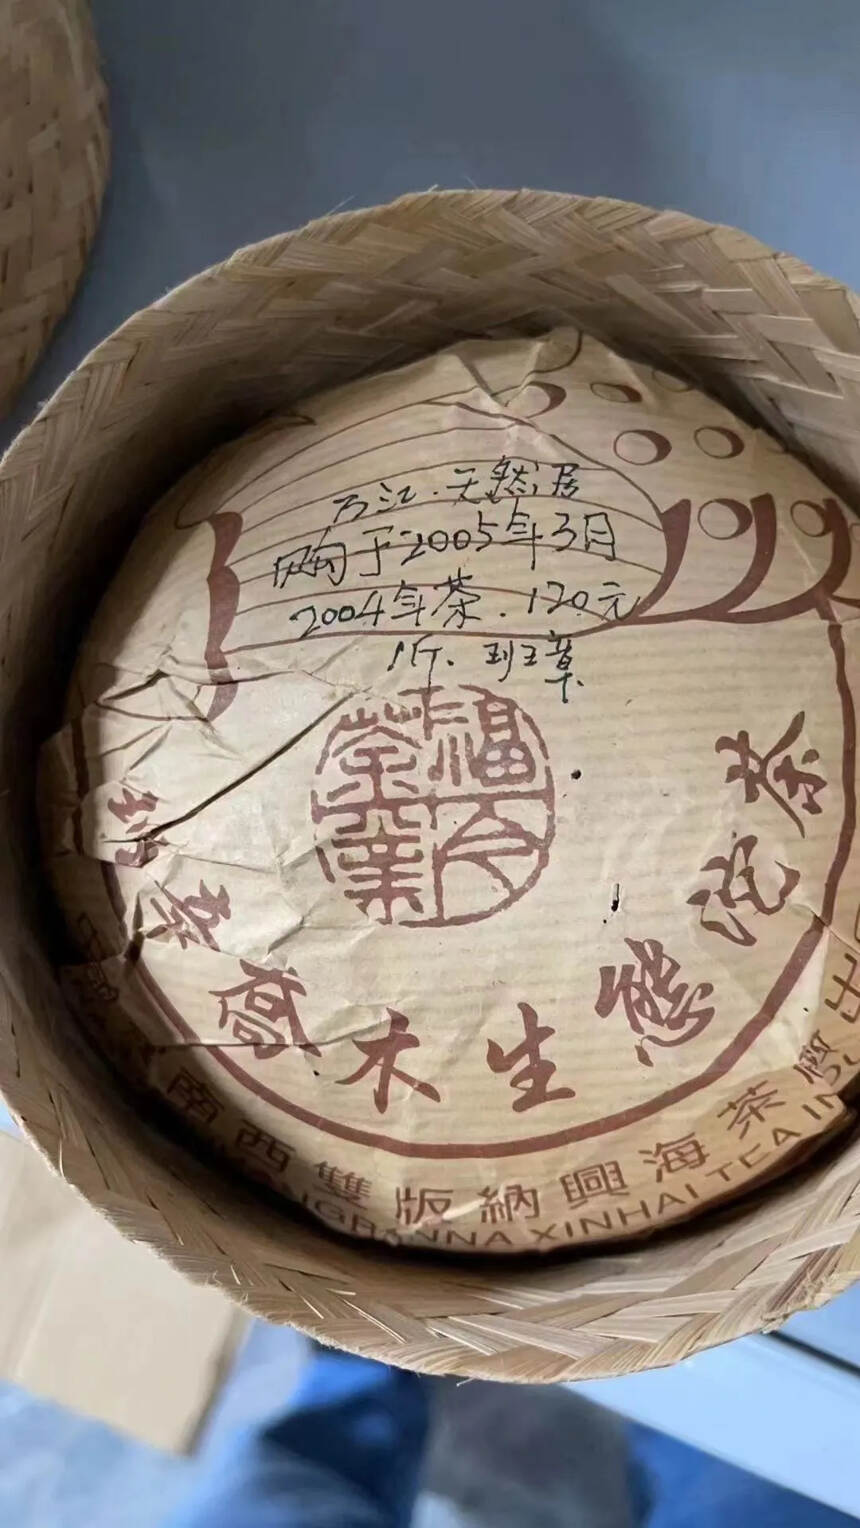 万江.天然居
购于2005年3月
2004年茶.120元
1斤.班章
福今
茶業
班章喬木生態沱茶
南西雙版納興海茶廠出
NGBANNA XINHAI TEA IN